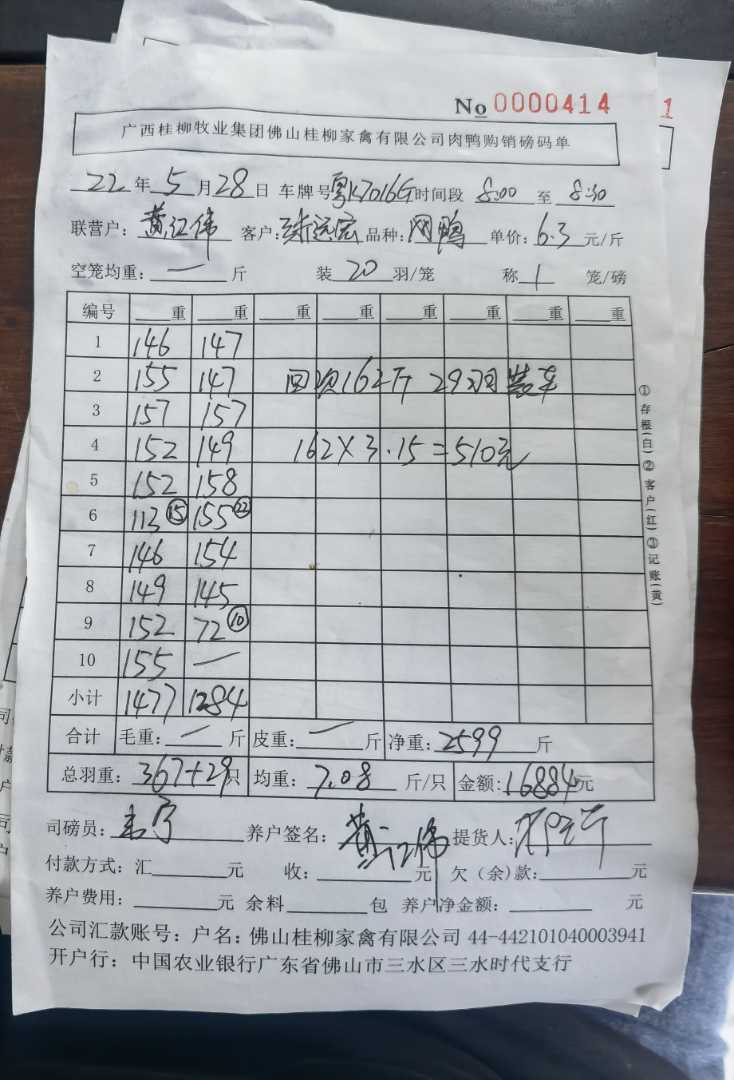 No 0000414
1
广西桂柳牧业集团佛山桂柳家禽有限公司肉鸭购销磅码单
22年5月28日 车牌号粤K7016G时间段 8:00 至 8:30
联营户：黄江伟 客户： 品种： 鸭 单价：6.3元/斤
空笼均重：一斤 装20羽/笼 称1笼/磅
编号 重 重 重 重 重 重 重 重
1 146 147
2 155 147 162斤 29羽 装车
3 157 157
4 152 149 162×3.15=510元
5 152 158
6 113⑮ 155㉒
7 146 154
8 149 145
9 152 72⑩
10 155 一
小计 1477 1284
合计 毛重：一斤 皮重：一斤 净重：2599斤
总羽重：367+29只 均重：7.08斤/只 金额：16884元
司磅员： 养户签名：黄江伟 提货人：
付款方式：汇元 收：元 欠（余）款：元
养户费用：元 余料包 养户净金额：元
公司汇款账号：户名：佛山桂柳家禽有限公司 44-442101040003941
开户行：中国农业银行广东省佛山市三水区三水时代支行
①存根(白)②客户(红)③记账(黄)